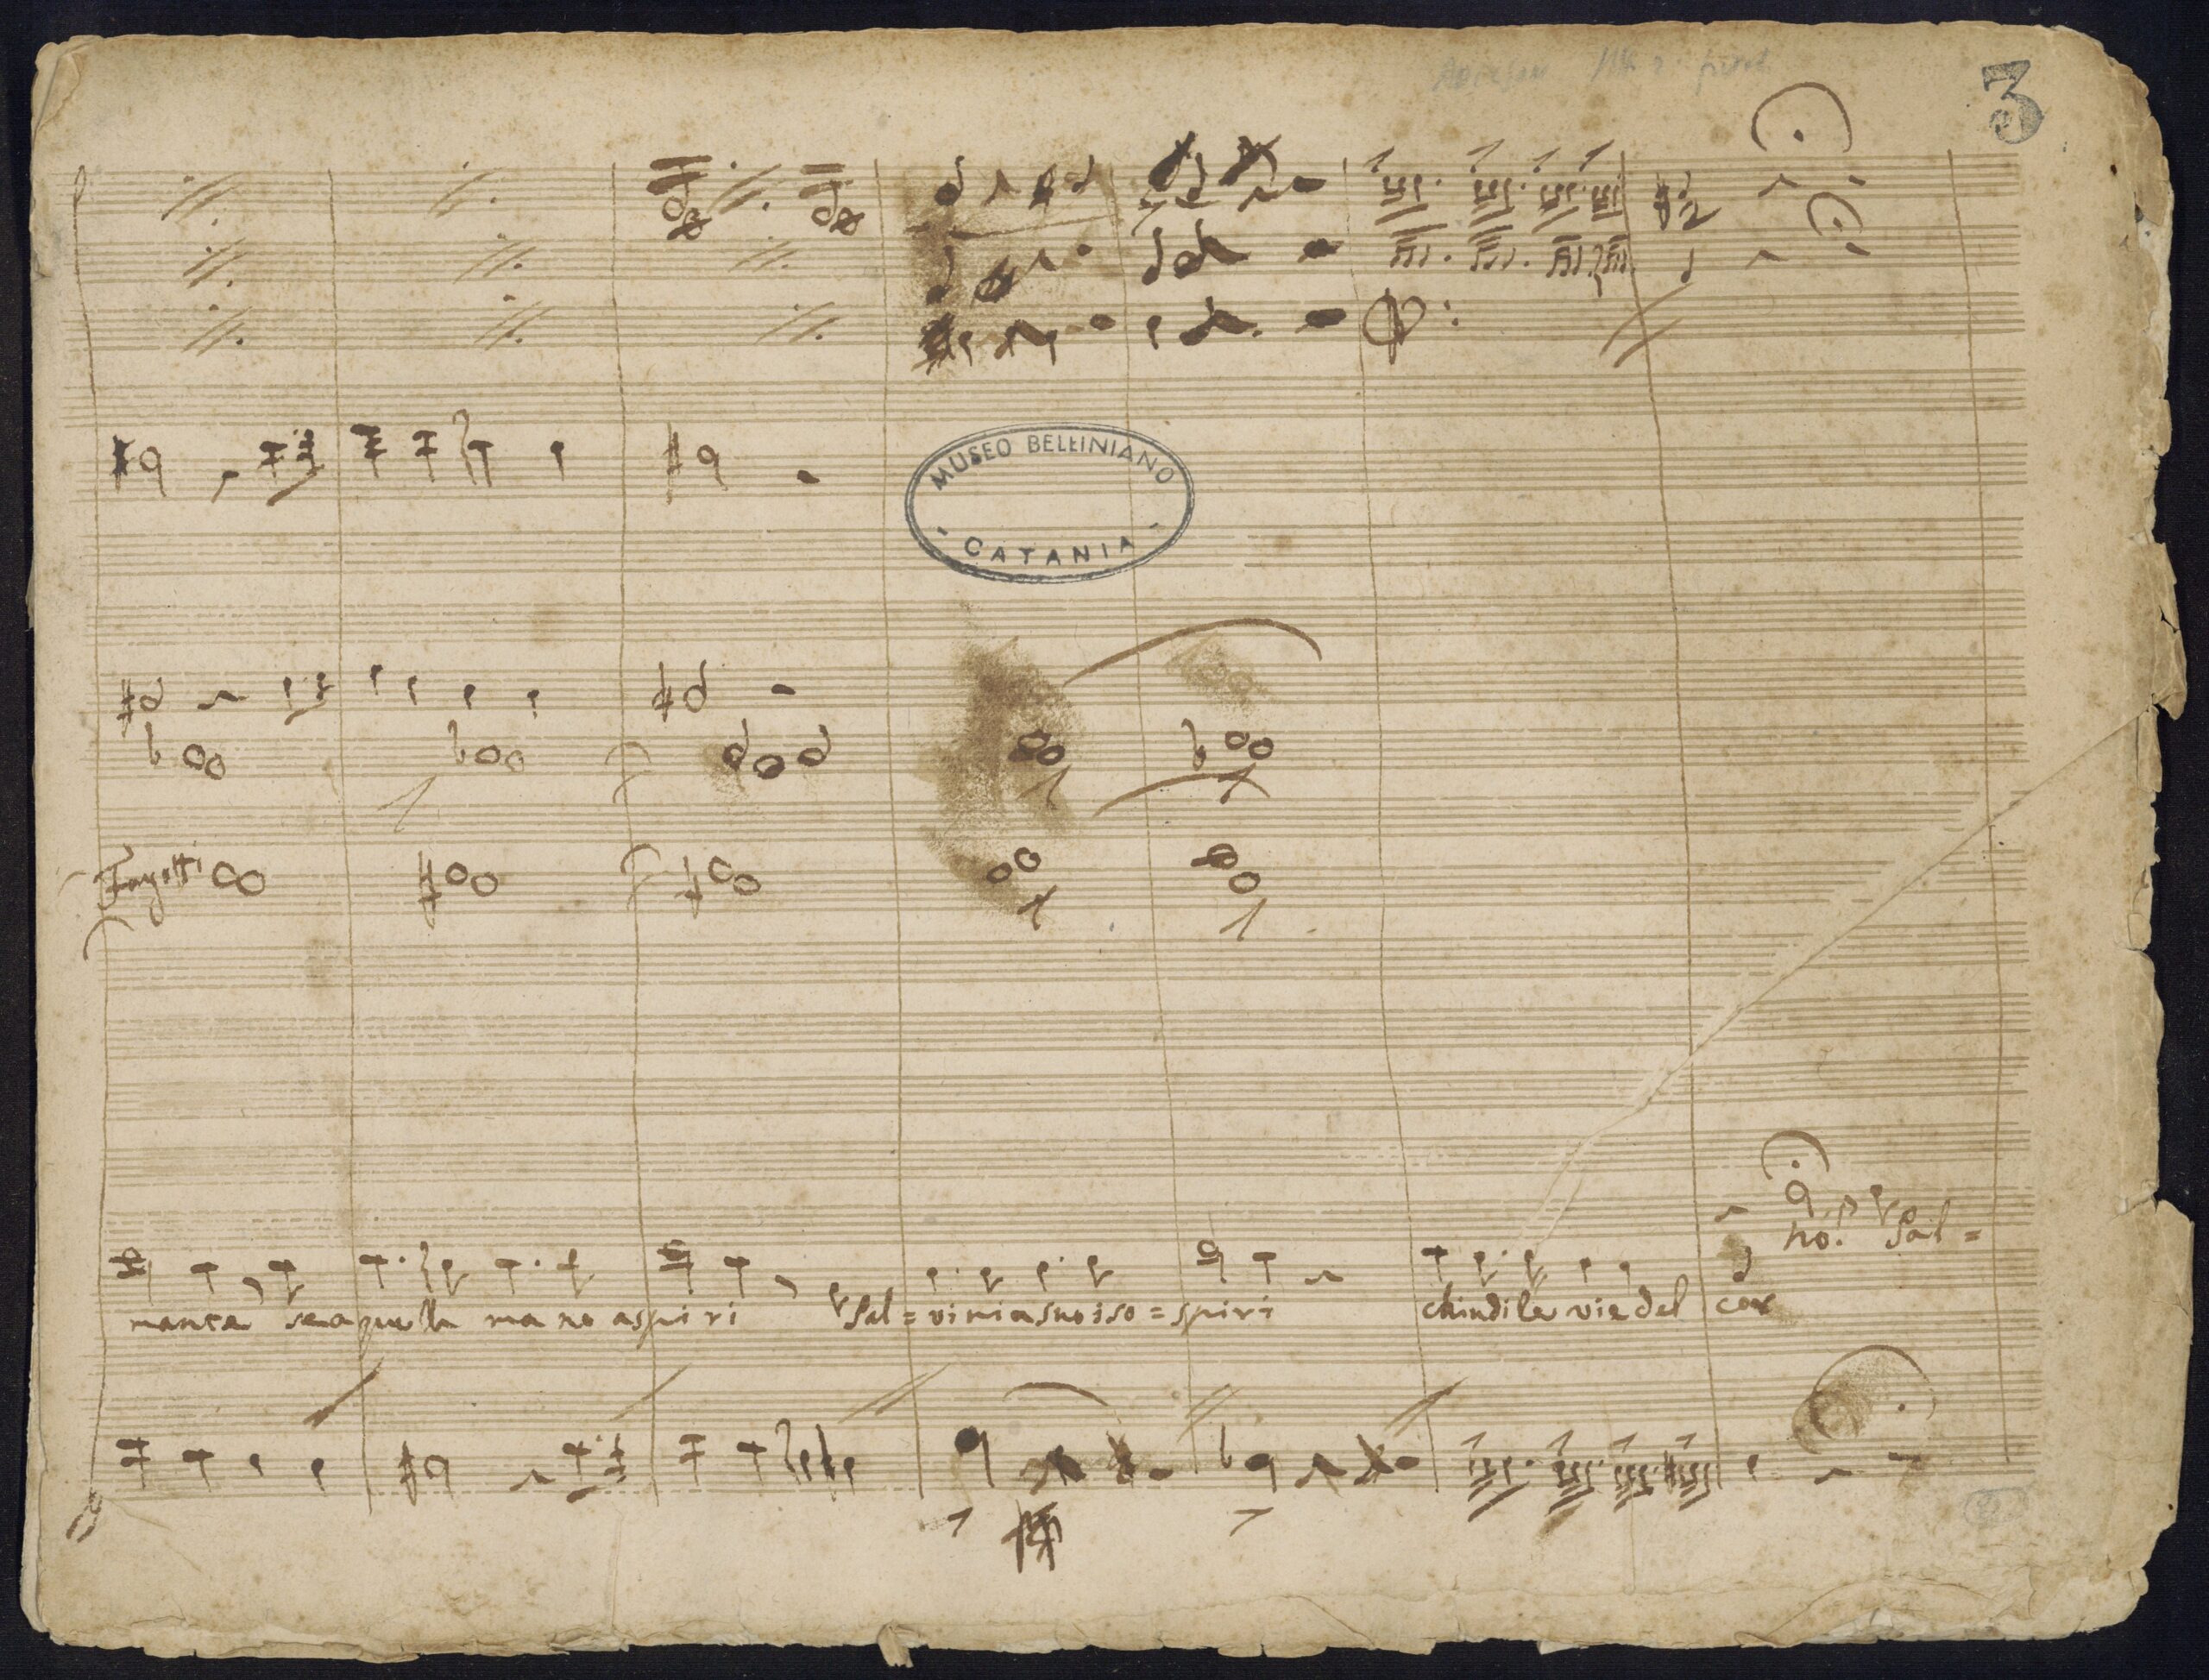 3
MUSEO BELLINIANO
CATANIA
Fagotti
nó! Sal=
manca se a quella mano aspiri Sal=vini a suoi so=spiri chiudi le vie del cor